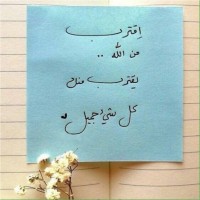 اقترب
من الله ..
يقترب منك
كل شيء جميل ♥